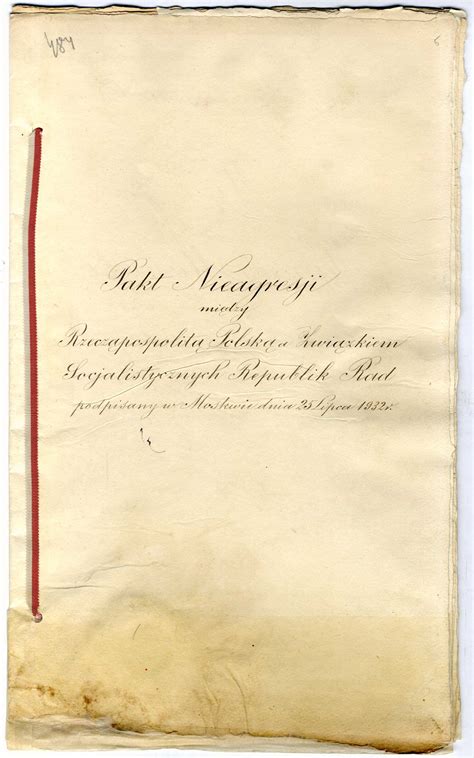 484
6
Pakt Nieagresji
między
Rzecząpospolitą Polską a Związkiem
Socjalistycznych Republik Rad
podpisany w Moskwie dnia 25 Lipca 1932 r.